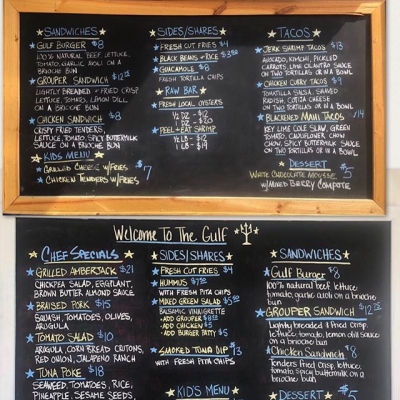 SANDWICHES
GULF BURGER $8
100% NATURAL BEEF, LETTUCE,
TOMATO, GARLIC AIOLI ON A
BRIOCHE BUN
GROUPER SANDWICH $12.75
LIGHTLY BREADED + FRIED CRISP
LETTUCE, TOMATO, LEMON DILL,
ON A BRIOCHE BUN
CHICKEN SANDWICH $8
CRISPY FRIED TENDERS,
LETTUCE, TOMATO, SPICY BUTTERMILK
SAUCE ON A BRIOCHE BUN
KIDS MENU
GRILLED CHEESE W/FRIES
CHICKEN TENDERS W/FRIES
$7
SIDES/SHARES
FRESH CUT FRIES $4
BLACK BEANS + RICE $3.50
GUACAMOLE $8
FRESH TORTILLA CHIPS
RAW BAR
FRESH LOCAL OYSTERS
1/2 DZ - $12
1 DZ - $20
PEEL + EAT SHRIMP
1/2 LB - $12
1 LB - $19
TACOS
JERK SHRIMP TACOS $13
AVOCADO, KIMCHI, PICKLED
CARROTS, LIME CILANTRO SAUCE
ON TWO TORTILLAS OR IN A BOWL
CHICKEN CURRY TACOS $9
TOMATILLA SALSA, SHAVED
RADISH, COTIJA CHEESE
ON TWO TORTILLAS OR IN A BOWL
BLACKENED MAHI TACOS $14
KEY LIME COLE SLAW, GREEN
TOMATO, CAULIFLOWER, CHOW
CHOW, SPICY BUTTERMILK SAUCE
ON TWO TORTILLAS OR IN A BOWL
DESSERT
WHITE CHOCOLATE MOUSSE
W/MIXED BERRY COMPOTE
$5
Welcome To The Gulf
CHEF SPECIALS
GRILLED AMBERJACK $21
CHICKPEA SALAD, EGGPLANT,
BROWN BUTTER ALMOND SAUCE
BRAISED PORK $15
SQUASH, TOMATOES, OLIVES,
ARUGULA
TOMATO SALAD $10
ARUGULA, CORN BREAD CRUTONS,
RED ONION, JALAPENO RANCH
TUNA POKE $18
SEAWEED, TOMATOES, RICE,
PINEAPPLE, SESAME SEEDS,
SIDES/SHARES
FRESH CUT FRIES $4
HUMMUS $7
WITH FRESH PITA CHIPS
MIXED GREEN SALAD $5
BALSAMIC VINIGRETTE
ADD GROUPER $8
ADD CHICKEN $5
ADD BURGER PATTY $5
SMOKED TUNA DIP $13
WITH FRESH PITA CHIPS
KID'S MENU
SANDWICHES
Gulf Burger $8
100% natural beef, lettuce,
tomato, garlic aioli on a brioche
bun
GROUPER SANDWICH $12.75
Lightly breaded & fried crisp
lettuce, tomato, lemon dill sauce
on a brioche bun
Chicken Sandwich $8
Tenders fried crisp, lettuce,
tomato, spicy buttermilk sauce
on a brioche bun
DESSERT $5